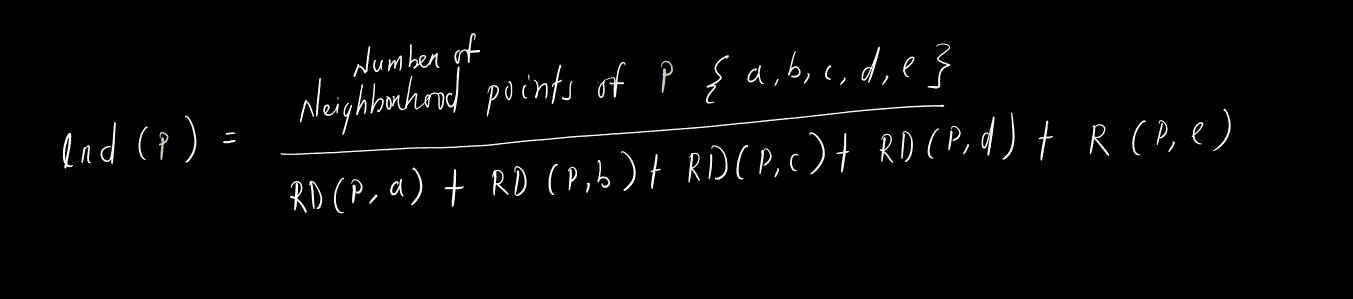 Number of
Neighborhood points of P { a, b, c, d, e }
lrd (P) =
RD (P, a) + RD (P, b) + RD (P, c) + RD (P, d) + R (P, e)